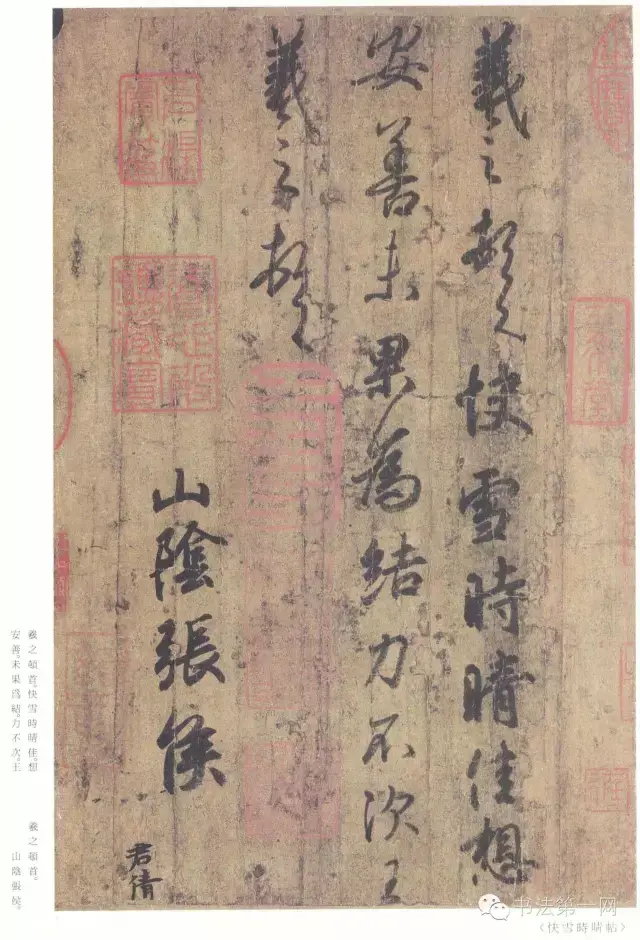 羲之頓首快雪時晴佳想
安善未果為結力不次王
羲之頓首
山陰張侯
君倩
羲之頓首。快雪時晴佳。想
安善。未果爲結。力不次。王
羲之頓首。
山陰張侯。
书法第一网
〈快雪時晴帖〉